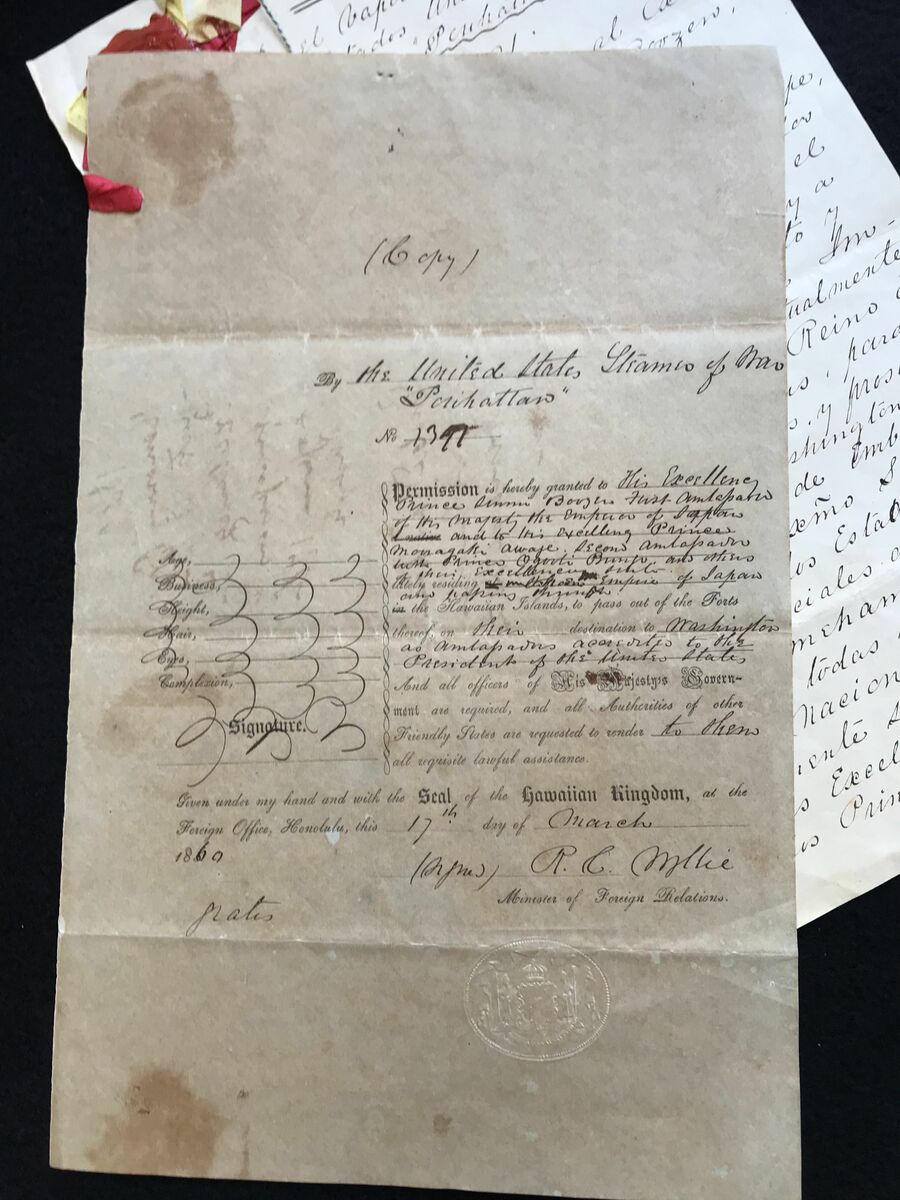 (Copy)
By the United States Steamer of War
"Powhattan"
No 1397
Permission is hereby granted to His Excellency
Prince Simmi Boozen First Ambassador
of His Majesty the Emperor of Japan
and to His Excellency Prince
Mouragaki Awaje Second Ambassador
with Prince Ogooti Bungo and others
their Excellencies
lately residing Empire of Japan
and
in the Hawaiian Islands, to pass out of the Ports
thereof, on their destination to Washington
as Ambassadors accredited to the
President of the United States
And all officers of His Majesty's Govern-
ment are required, and all Authorities of other
Friendly States are requested to render to them
all requisite lawful assistance.
Age,
Business,
Height,
Hair,
Eyes,
Complexion,
Signature.
Given under my hand and with the Seal of the Hawaiian Kingdom, at the
Foreign Office, Honolulu, this 17th day of March
1860
(Signed) R. C. Wyllie
Minister of Foreign Relations.
gratis
el vapor
Estados Un
el
Boozen,
pe,
el
y a
to y
Im-
tualmente
Reino
para
y pres
shington
de Emb
Estad
ciales
todas
Nacion
Excel
Prin